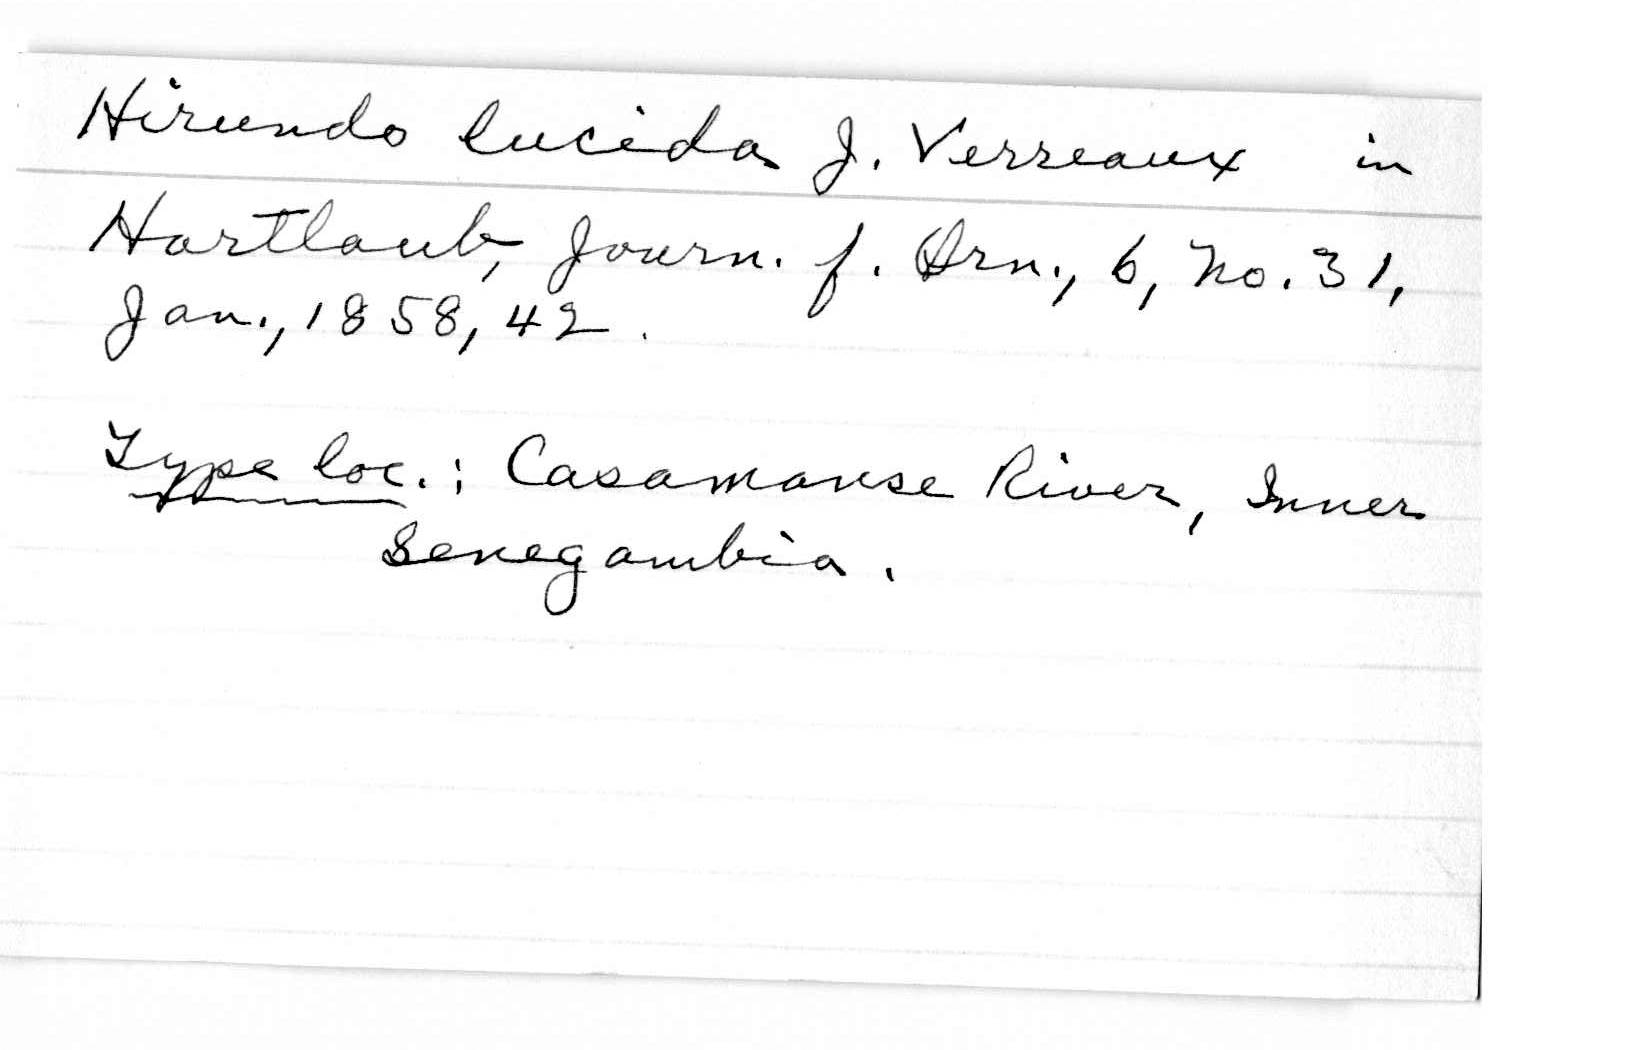 Hirundo lucida J. Verreaux in
Hartlaub, Journ. f. Orn., 6, No. 31,
Jan., 1858, 42.
Type loc.: Casamanse River, Inner
Senegambia.